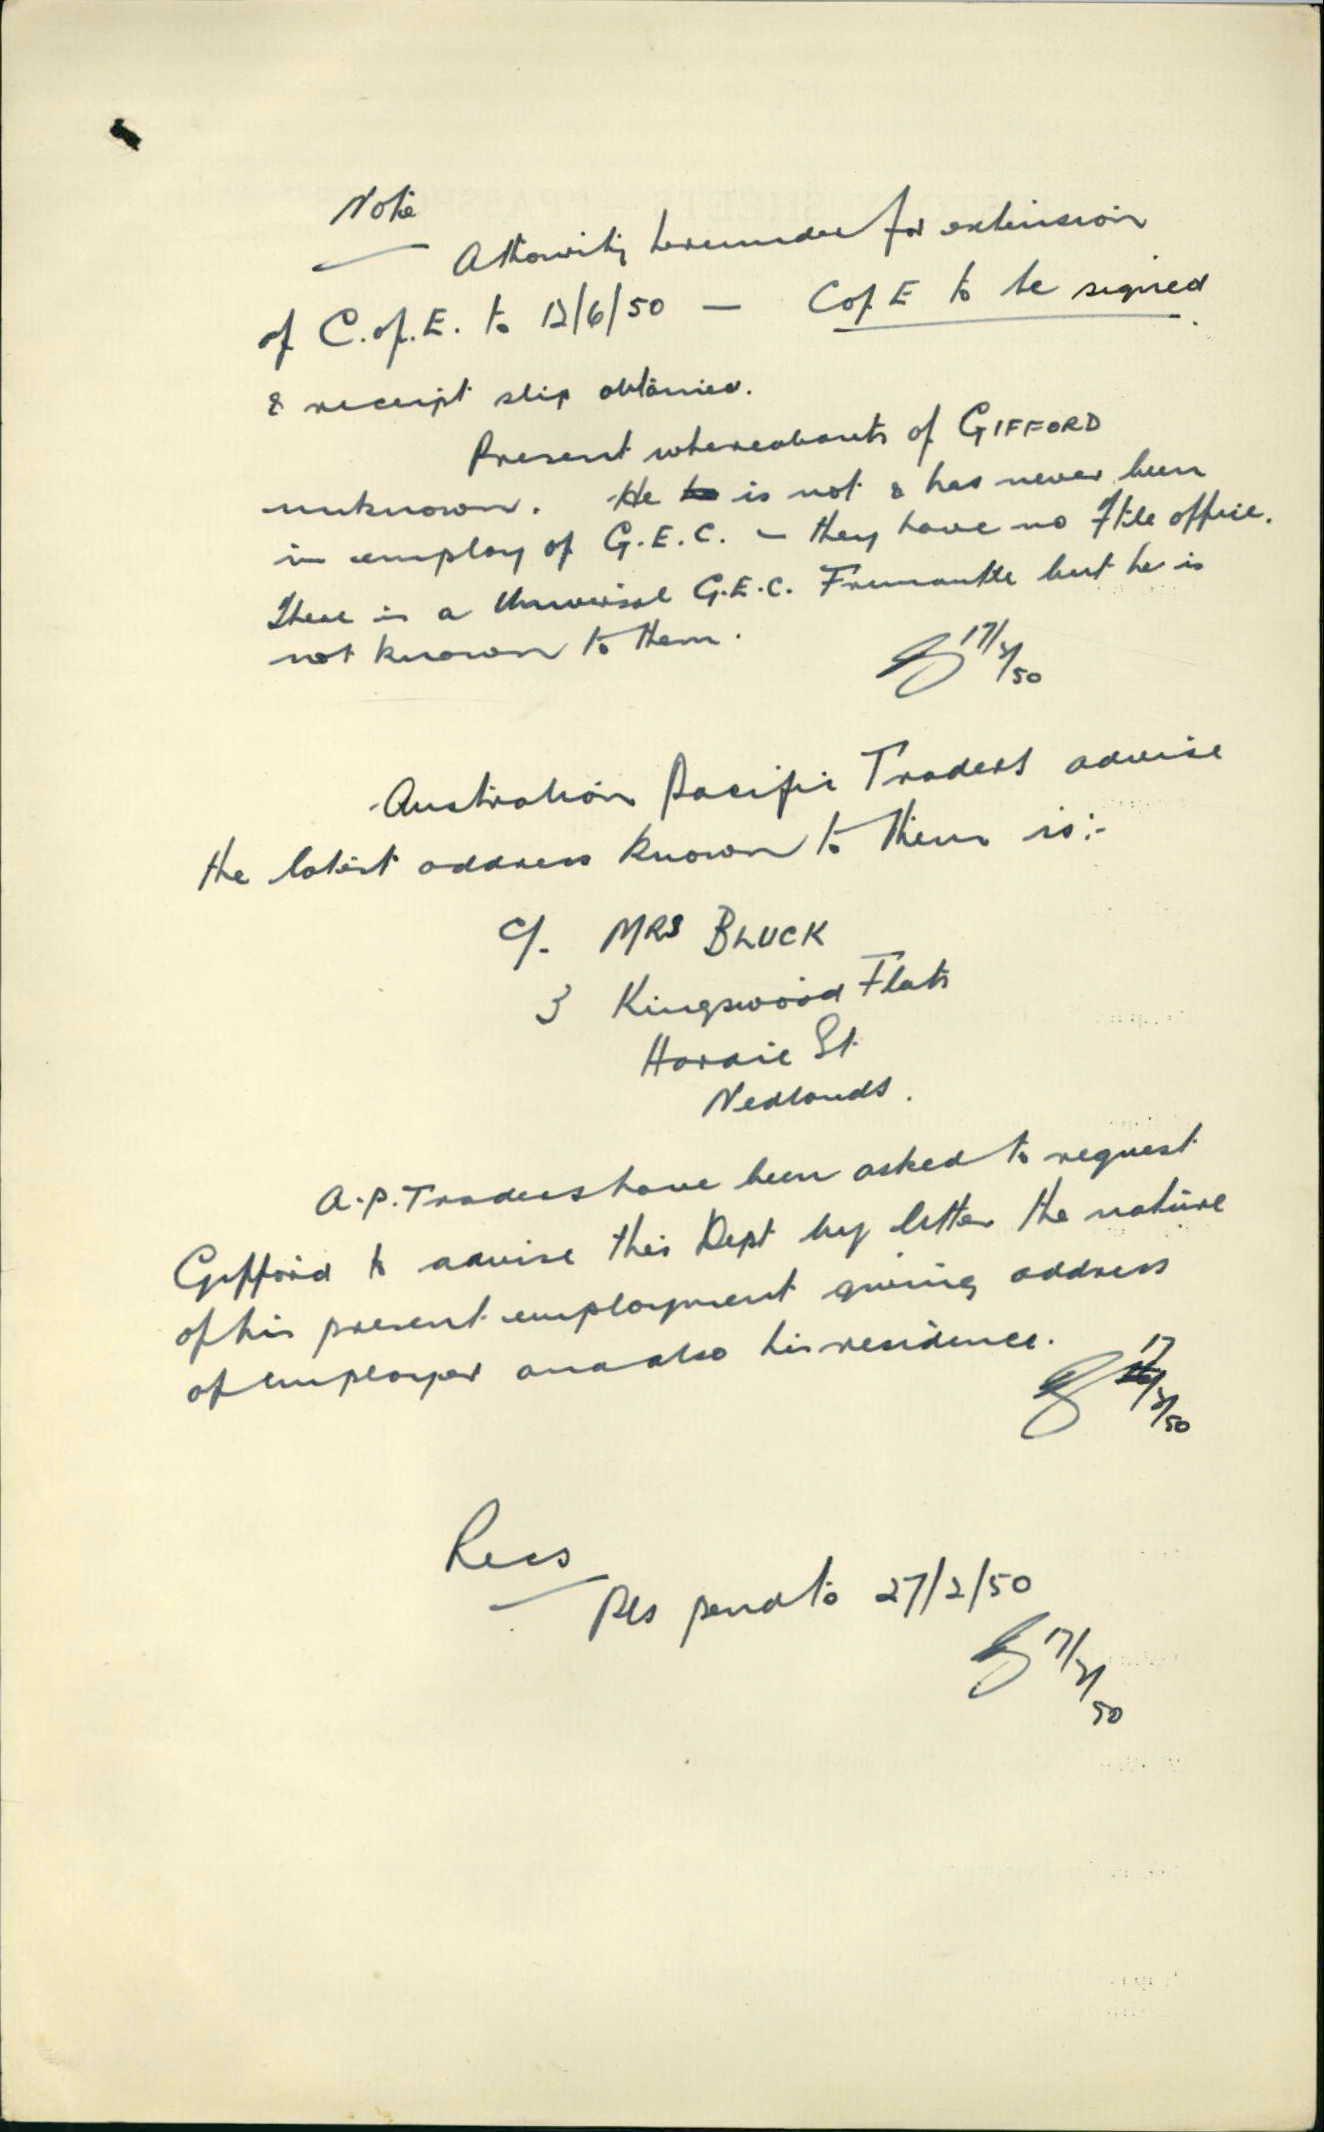 Note
Athourity hereunder for extension
of C.of.E. to 12/6/50 — C of E to be signed
& receipt slip obtained.
Present whereabouts of GIFFORD
unknown. He is not & has never been
in employ of G.E.C. – they have no F'tle office.
There is a Universal G.E.C. Fremantle but he is
not known to them.
17/2/50
Australian Pacific Traders advise
the latest address known to them is:-
c/. MRS BLUCK
3 Kingswood Flats
Hardie St
Nedlands.
A.P. Traders have been asked to request
Gifford to advise this Dept by letter the nature
of his present employment giving address
of employer and also his residence.
17/2/50
Recs
Pls pend to 27/2/50
17/2/50